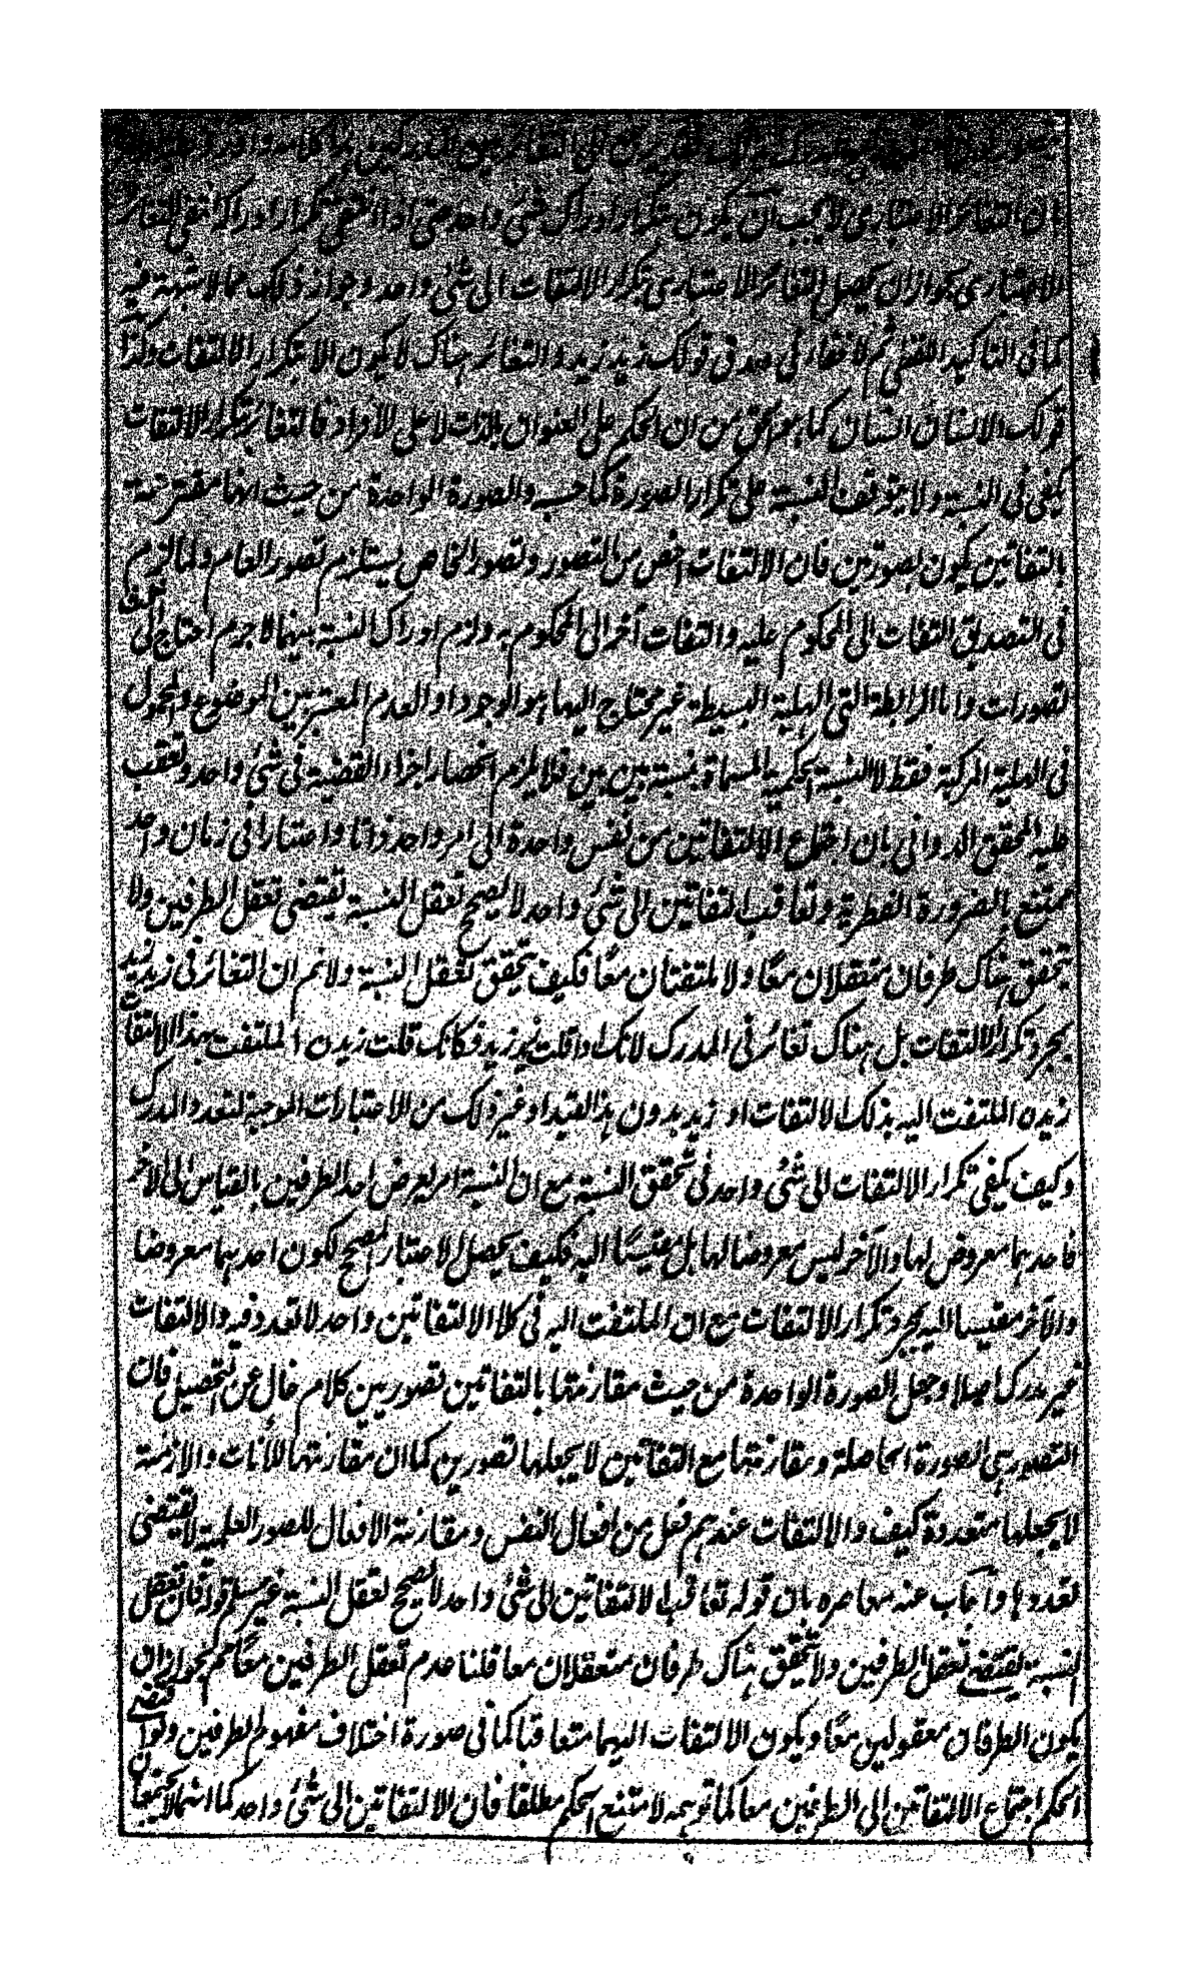 بان التغائر الاعتبارى لا يجب ان يكون بتكرار ادراك شئ واحد حتى اذا انتفى تكرار ادراكه انتفى التغائر
الاعتبارى بجواز ان يحصل التغائر الاعتبارى بتكرار الالتفات الى شئ واحد وجوازه ذلك مما لا شبهة فيه
كما فى التاكيد اللفظى ثم لا خفاء فى قولك زيد زيد والتغائر هناك لا يكون الا بتكرار الالتفات وكذا
قولك الانسان انسان كما هو الحق من ان الحكم على العنوان بالذات لا على الافراد فالتغائر بتكرار الالتفات
يكفى فى النسبة ولا يتوقف النسبة على تكرار الصورة كما حسبه والصورة الواحدة من حيث انها مقترنة
بالتفاتين يكون بصورتين فان الالتفات اخص من التصور وتصور الخاص يستلزم تصور العام ولما لزم
فى التصديق التفات الى المحكوم عليه والتفات آخر الى المحكوم به ولزم ادراك النسبة بينهما لا جرم احتاج الى
تصورات واما الرابطة التى الهلية البسيطة غير محتاج اليها هو الوجود او العدم المعتبر بين الموضوع والمحمول
فى الهلية المركبة فقط لا النسبة الحكمية المسماة بنسبة بين بين فلا يلزم انحصار اجزاء القضية فى شئ واحد وتعقب
عليه المحقق الدوانى بان اجتماع الالتفاتين من نفس واحدة الى امر واحد ذاتا واعتبارا فى زمان واحد
ممتنع بالضرورة الفطرية وتعاقب التفاتين الى شئ واحد لا يصحح تعقل النسبة يقتضى تعقل الطرفين ولا
يتحقق هناك طرفان متعقلان معًا ولا ملتفتان معًا فكيف يتحقق تعقل النسبة ولا نم ان التغائر فى زيد زيد
بمجرد تكرار الالتفات بل هناك تغائر فى المدرك لانك اذا قلت زيد زيد فكانك قلت زيدن الملتفت بهذا الالتفات
زيدن الملتفت اليه بذلك الالتفات او زيد بدون هذا القيد او غير ذلك من الاعتبارات الموجبة لتعدد المدرك
وكيف يكفى تكرار الالتفات الى شئ واحد فى تحقق النسبة مع ان النسبة امر يعرض احد الطرفين بالقياس الى الآخر
فاحدهما معروض لها والآخر ليس معروضا لها بل مقيسًا اليه فكيف يحصل الاعتبار المصحح لكون احدهما معروضا
والآخر مقيسا اليه بمجرد تكرار الالتفات مع ان الملتفت اليه فى كلا الالتفاتين واحد لا تعدد فيه والالتفات
غير مدرك اصلا وجعل الصورة الواحدة من حيث مقارنتها بالتفاتين تصورين كلام خال عن التحصيل فان
التصور هى الصورة الحاصلة ومقارنتها مع التفاتين لا يجعلها تصورين كما ان مقارنتها للآنات والازمنة
لا يجعلها متعددة كيف والالتفات عندهم فعل من افعال النفس ومقارنة الافعال للصور العلمية لا يقتضى
تعددها واجاب عنه معاصره بان قوله تعاقب الالتفاتين الى شئ واحد لا يصحح تعقل النسبة غير مسلم قوله فان تعقل
النسبة يقتضى تعقل الطرفين ولا يتحقق هناك طرفان متعقلان معا قلنا عدم تعقل الطرفين معًا مم لجواز ان
يكون الطرفان معقولين معًا ويكون الالتفات اليهما متعاقبا كما فى صورة اختلاف مفهوم الطرفين ولو اقتضى
الحكم اجتماع الالتفاتين الى الطرفين معا كما توهمه لامتنع الحكم مطلقا فان الالتفاتين الى شئ واحد كما انهما لا يجتمعان